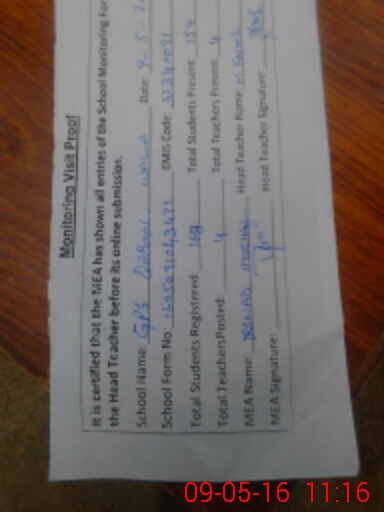 Monitoring Visit Proof
It is certified that the MEA has shown all entries of the School Monitoring For
the Head Teacher before its online submission.
School Name: GPS Date: 9-5-2
School Form No: EMIS Code:
Total Students Registered: 168 Total Students Present: 154
Total TeachersPosted: 4 Total Teachers Present: 4
MEA Name: Head Teacher Name:
MEA Signature: Head Teacher Signature:
09-05-16 11:16